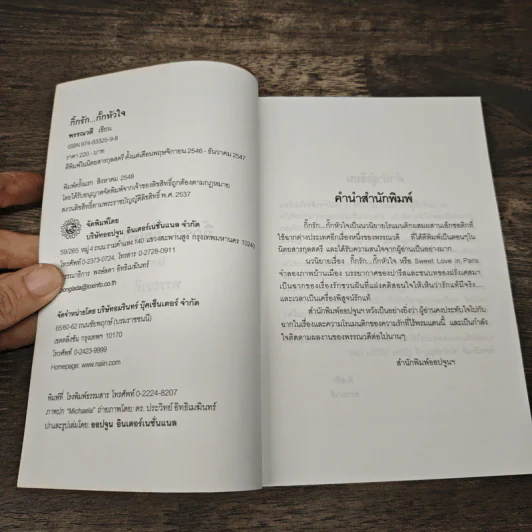 กิ๊กรัก...กั๊กหัวใจ
พรรณวดี เขียน
ISBN 974-93325-9-8
ราคา 220.- บาท
ตีพิมพ์ในนิตยสารกุลสตรี ตั้งแต่เดือนพฤศจิกายน 2546 - ธันวาคม 2547
พิมพ์ครั้งแรก สิงหาคม 2548
โดยได้รับอนุญาตจัดพิมพ์จากเจ้าของลิขสิทธิ์ถูกต้องตามกฎหมาย
สงวนลิขสิทธิ์ตามพระราชบัญญัติลิขสิทธิ์ พ.ศ. 2537
จัดพิมพ์โดย
บริษัทออปจูน อินเตอร์เนชั่นแนล จำกัด
59/265 หมู่ 4 ถนนรามคำแหง 140 แขวงสะพานสูง กรุงเทพมหานคร 10240
โทรศัพท์ 0-2373-0724, โทรสาร 0-2728-0911
บรรณาธิการ พงษ์ลดา อิทธิเมฆินทร์
ponglada@loxinfo.co.th
จัดจำหน่ายโดย บริษัทอมรินทร์ บุ๊คเซ็นเตอร์ จำกัด
65/60-62 ถนนชัยพฤกษ์ (บรมราชชนนี)
เขตตลิ่งชัน กรุงเทพฯ 10170
โทรศัพท์ 0-2423-9999
Homepage: www.naiin.com
พิมพ์ที่ โรงพิมพ์ธรรมสาร โทรศัพท์ 0-2224-8207
ภาพปก "Michaela" ถ่ายภาพโดย: ดร. ประวิทย์ อิทธิเมฆินทร์
ปกและรูปเล่มโดย: ออปจูน อินเตอร์เนชั่นแนล
คำนำสำนักพิมพ์
กิ๊กรัก...กั๊กหัวใจเป็นนวนิยายโรแมนติกผสมผสานเอ็กซอติกที่
ใช้ฉากต่างประเทศอีกเรื่องหนึ่งของพรรณวดี ที่ได้ตีพิมพ์เป็นตอนๆใน
นิตยสารกุลสตรี และได้รับความสนใจจากผู้อ่านเป็นอย่างมาก
นวนิยายเรื่อง กิ๊กรัก...กั๊กหัวใจ หรือ Sweet Love in Paris
จำลองภาพบ้านเมือง บรรยากาศของปารีสและชนบทของฝรั่งเศสมา
เป็นฉากของเรื่องรักชวนฝันที่แฝงคติสอนใจให้เห็นว่ารักแท้มีจริง...
และเวลาเป็นเครื่องพิสูจน์รักแท้
สำนักพิมพ์ออปจูนฯ หวังเป็นอย่างยิ่งว่า ผู้อ่านคงประทับใจไปกับ
ฉากในเรื่องและความโรแมนติกของความรักที่ไร้พรมแดนนี้ และเป็นกำลัง
ใจติดตามผลงานของพรรณวดีต่อไปนานๆ
สำนักพิมพ์ออปจูนฯ